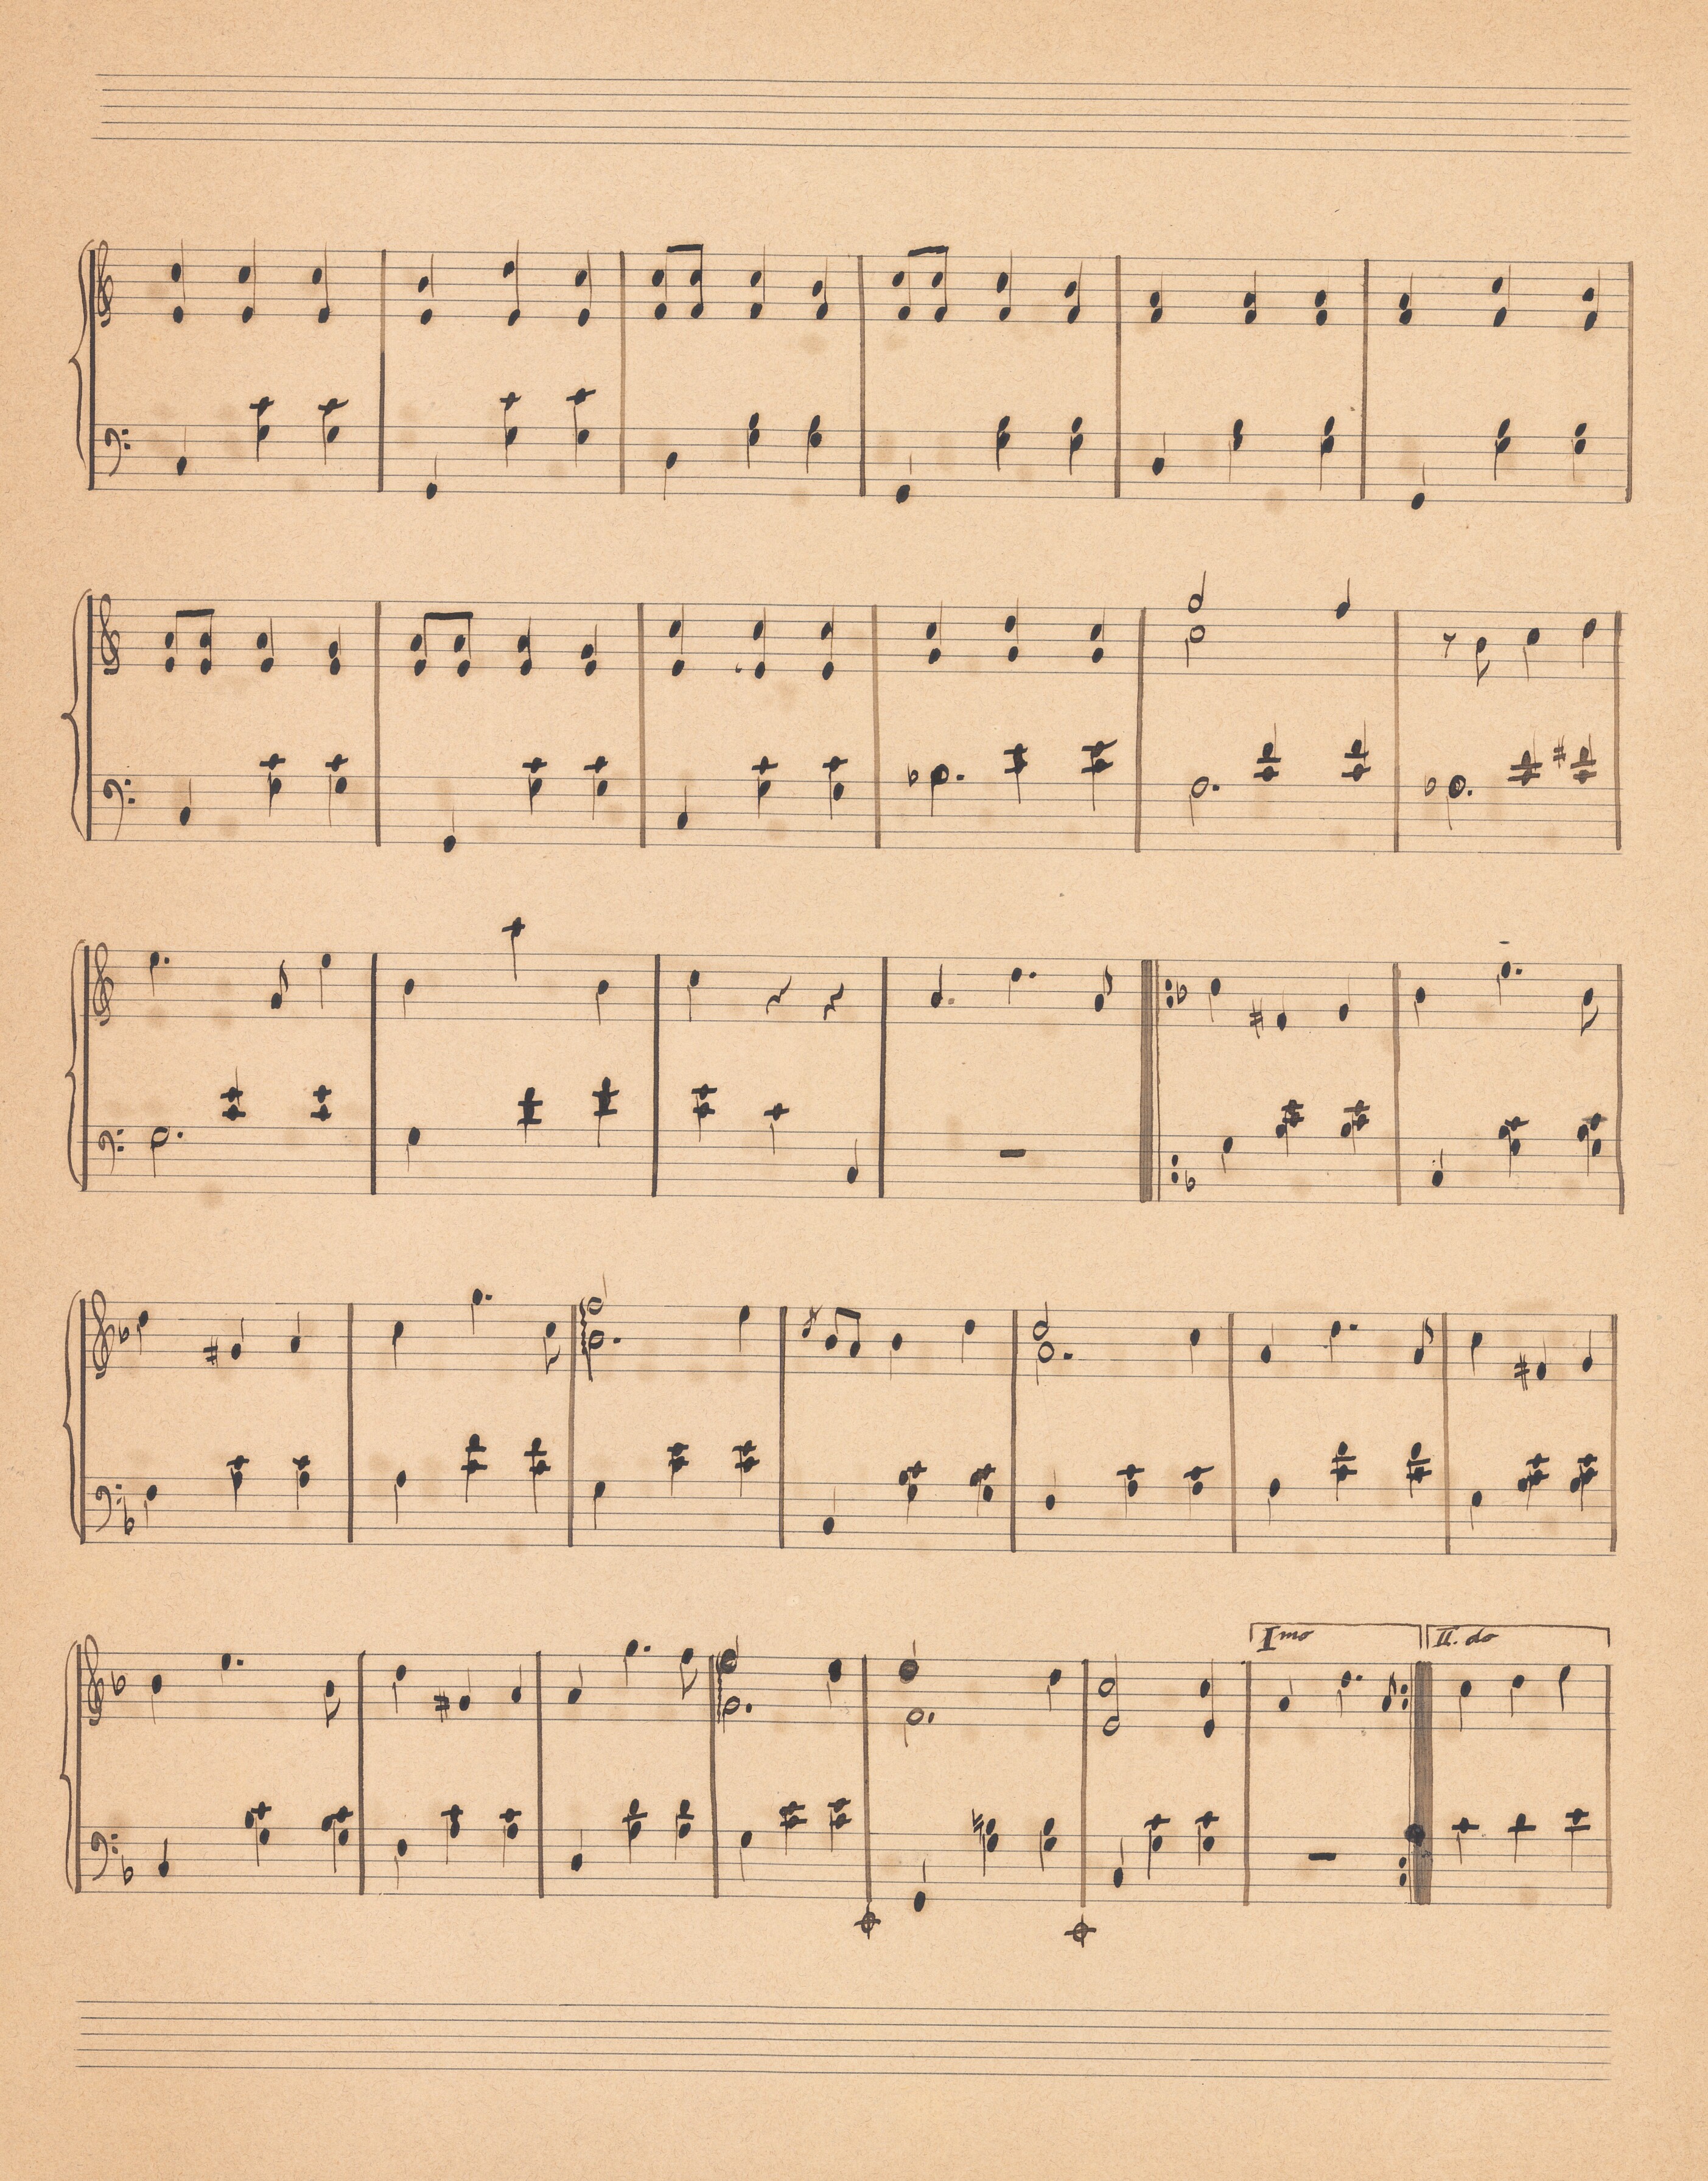 Imo II. do